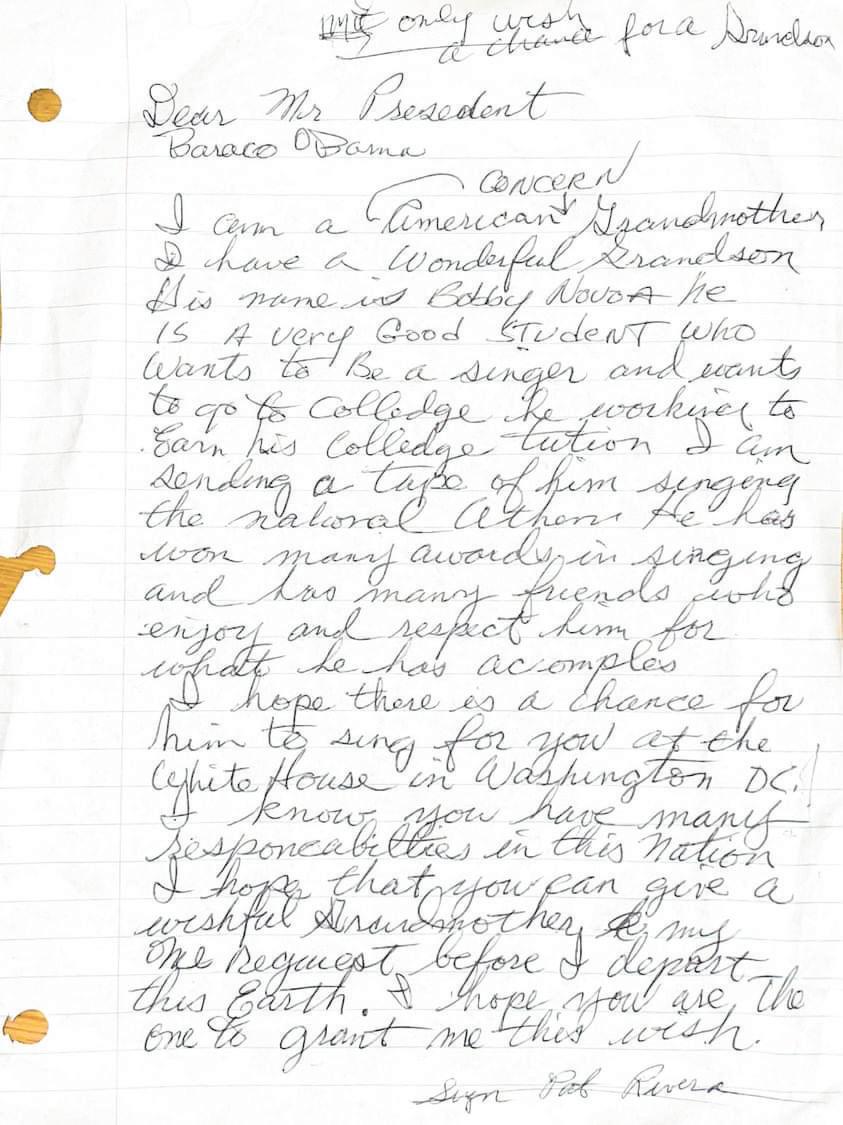 only wish
a chance for a Grandson
Dear Mr Presedent
Baraco OBama
CONCERN
I am a American Grandmother
I have a Wonderful Grandson
His name is Bobby Novoa he
is A very Good STudeNT who
Wants to Be a singer and wants
to go to Colledge he working to
Earn his Colledge tution I am
sending a tape of him singing
the national Athem He has
won many awards in singing
and has many friends who
enjoy and respect him for
what he has acomples
I hope there is a chance for
him to sing for you at the
White House in Washington DC.
I know you have many
responcabilties in this Nation
I hope that you can give a
wishful Grandmother my
one request before I depart
this Earth. I hope you are The
one to grant me this wish.
Sign Pat Rivera